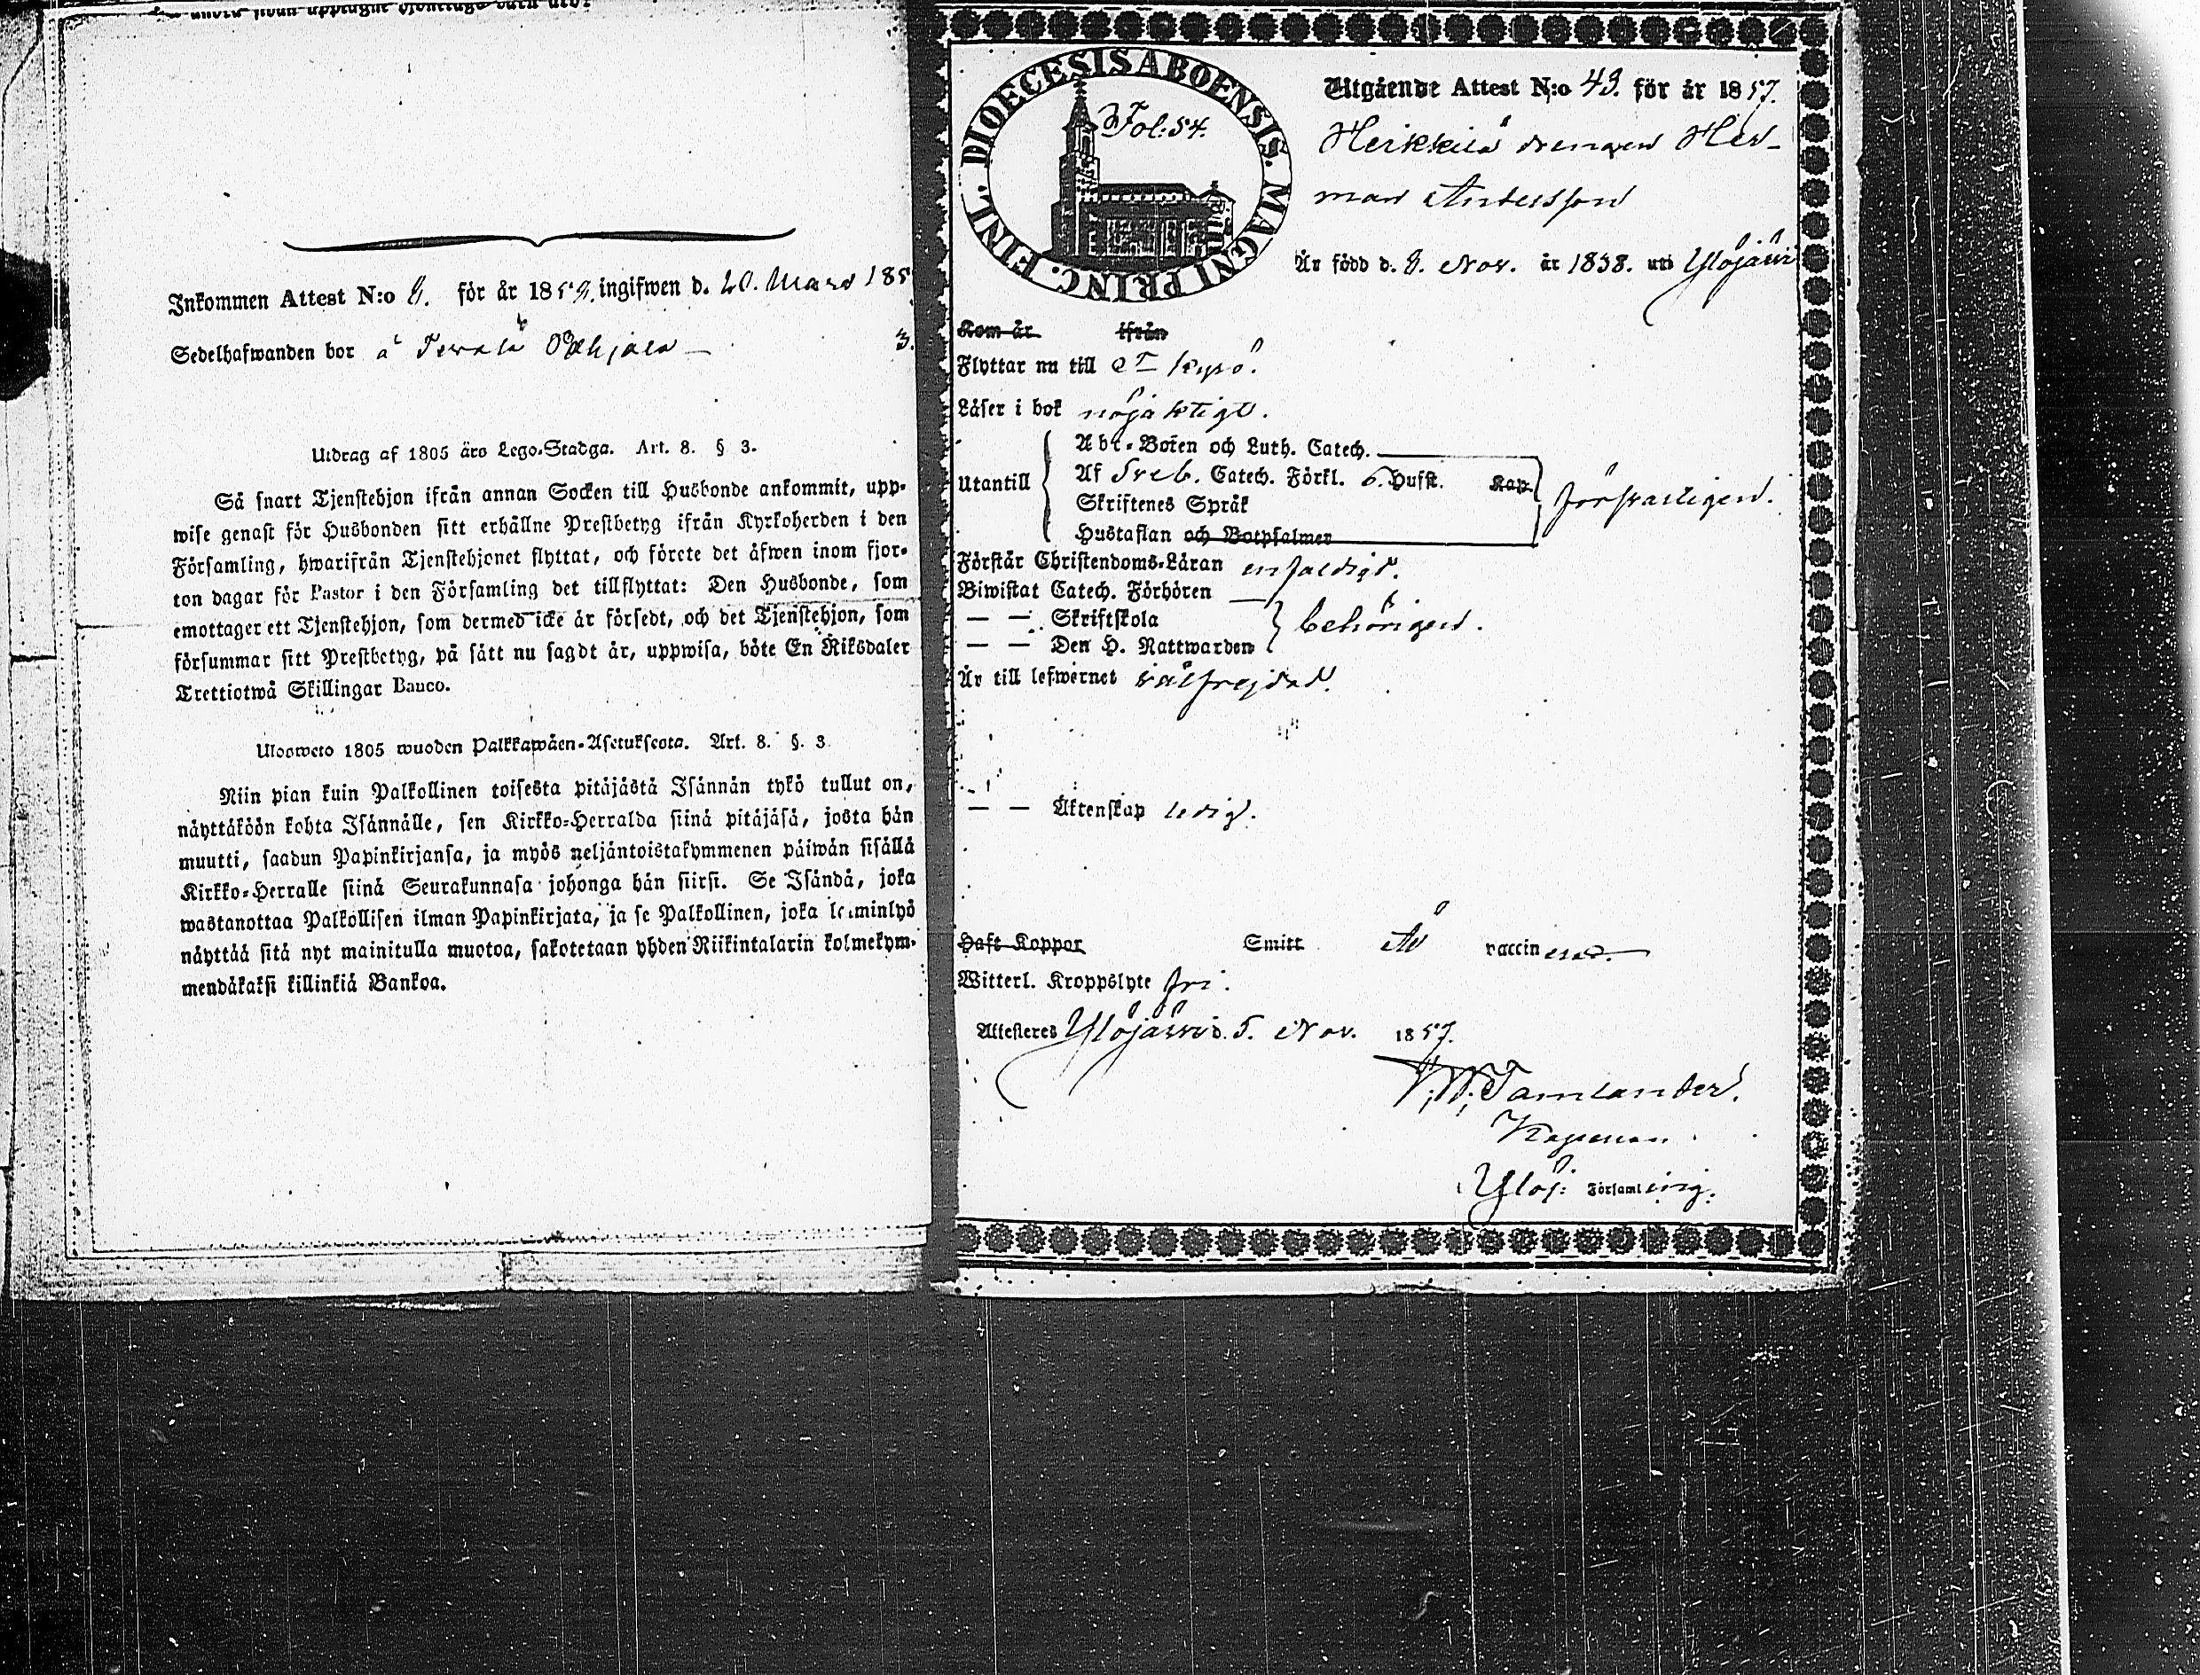 Inkommen Attest N:o 8. för år 1859. ingifwen d. 20. Mars 185
Sedelhafwanden bor å
3.
Utdrag af 1805 års Lego-Stadga. Art. 8. § 3.
Så snart Tjenstehjon ifrån annan Socken till Husbonde ankommit, upp-
wise genast för Husbonden sitt erhållne Prestbetyg ifrån Kyrkoherden i den
Församling, hwarifrån Tjenstehjonet flyttat, och förete det äfwen inom fjor-
ton dagar för Pastor i den Församling det tillflyttat: Den Husbonde, som
emottager ett Tjenstehjon, som dermed icke är försedt, och det Tjenstehjon, som
försummar sitt Prestbetyg, på sätt nu sagdt är, uppwisa, böte En Riksdaler
Trettiotwå Skillingar Banco.
Ulosweto 1805 wuoden Palkkawäen-Asetuksesta. Art. 8. §. 3.
Niin pian kuin Palkollinen toisesta pitäjästä Isännän tykö tullut on,
näyttäköön kohta Isännälle, sen Kirkko-Herralda siinä pitäjäsä, josta hän
muutti, saadun Papinkirjansa, ja myös neljäntoistakymmenen päiwän sisällä
Kirkko-Herralle siinä Seurakunnasa johonga hän siirsi. Se Isändä, joka
wastanottaa Palkollisen ilman Papinkirjata, ja se Palkollinen, joka laiminlyö
näyttää sitä nyt mainitulla muotoa, sakotetaan yhden Riikintalarin kolmekym-
mendäkaksi killinkiä Bankoa.
DIOECESIS ABOENSIS. MAGNI PRINC. FINL.
Fol: 54.
Utgående Attest N:o 43. för år 1857.
Heikkilä drengen Her-
man Andersson
Är född d. 8. Nov. år 1838. uti Ylöjärvi
Kom år ifrån
Flyttar nu till Kyrö.
Läser i bok nöjaktigt.
Utantill
Abc-Boken och Luth. Catech.
Af Sveb. Catech. Förkl. 6. Hufst. Kap.
Skriftenes Språk
Hustaflan och Botpsalmer
försvarligen.
Förstår Christendoms-Läran enfaldigt.
Biwistat Catech. Förhören
— — Skriftskola
— — Den H. Nattwarden
behörigen.
Är till lefwernet välfrejdad.
— — Äktenskap ledig.
Haft Koppor Smitt Är vaccinerad.
Witterl. Kroppslyte fri.
Attesteras Ylöjärvi d. 5. Nov. 1857.
Tamlander.
Kapellan.
Ylöj: Församling.